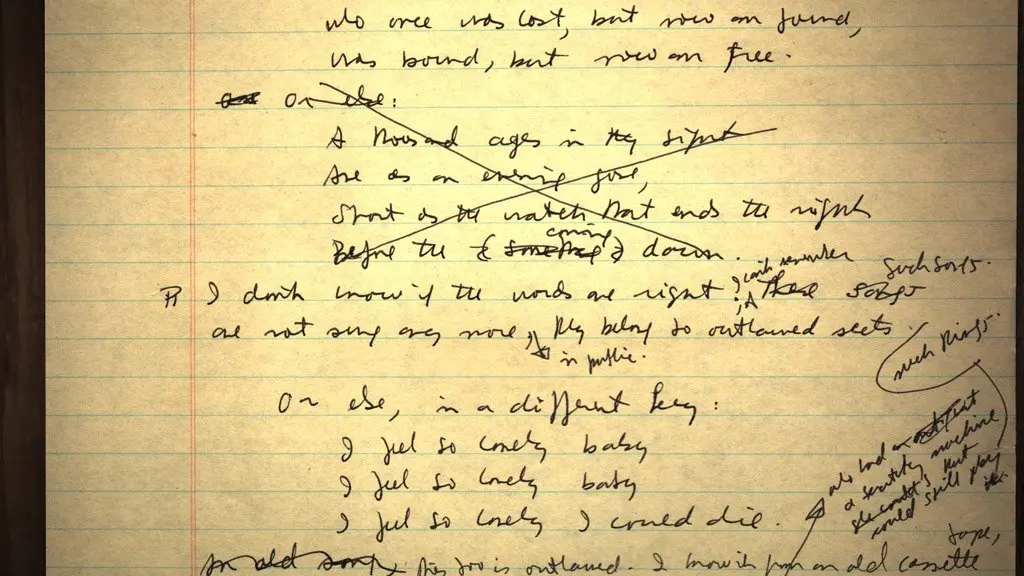 who once was lost, but now am found,
was bound, but now am free.
Or else:
A thousand ages in thy sight
Are as an evening gone,
Short as the watch that ends the night
Before the { something } dawn.
coming
I can't remember
such songs.
¶ I don't know if the words are right; These songs
are not sung any more, they belong to outlawed sects.
in public.
such things.
Or else, in a different key:
I feel so lonely baby
I feel so lonely baby
I feel so lonely I could die.
who had an
a scratchy machine
that
could still play
tape,
an old song, This too is outlawed. I know it from an old cassette